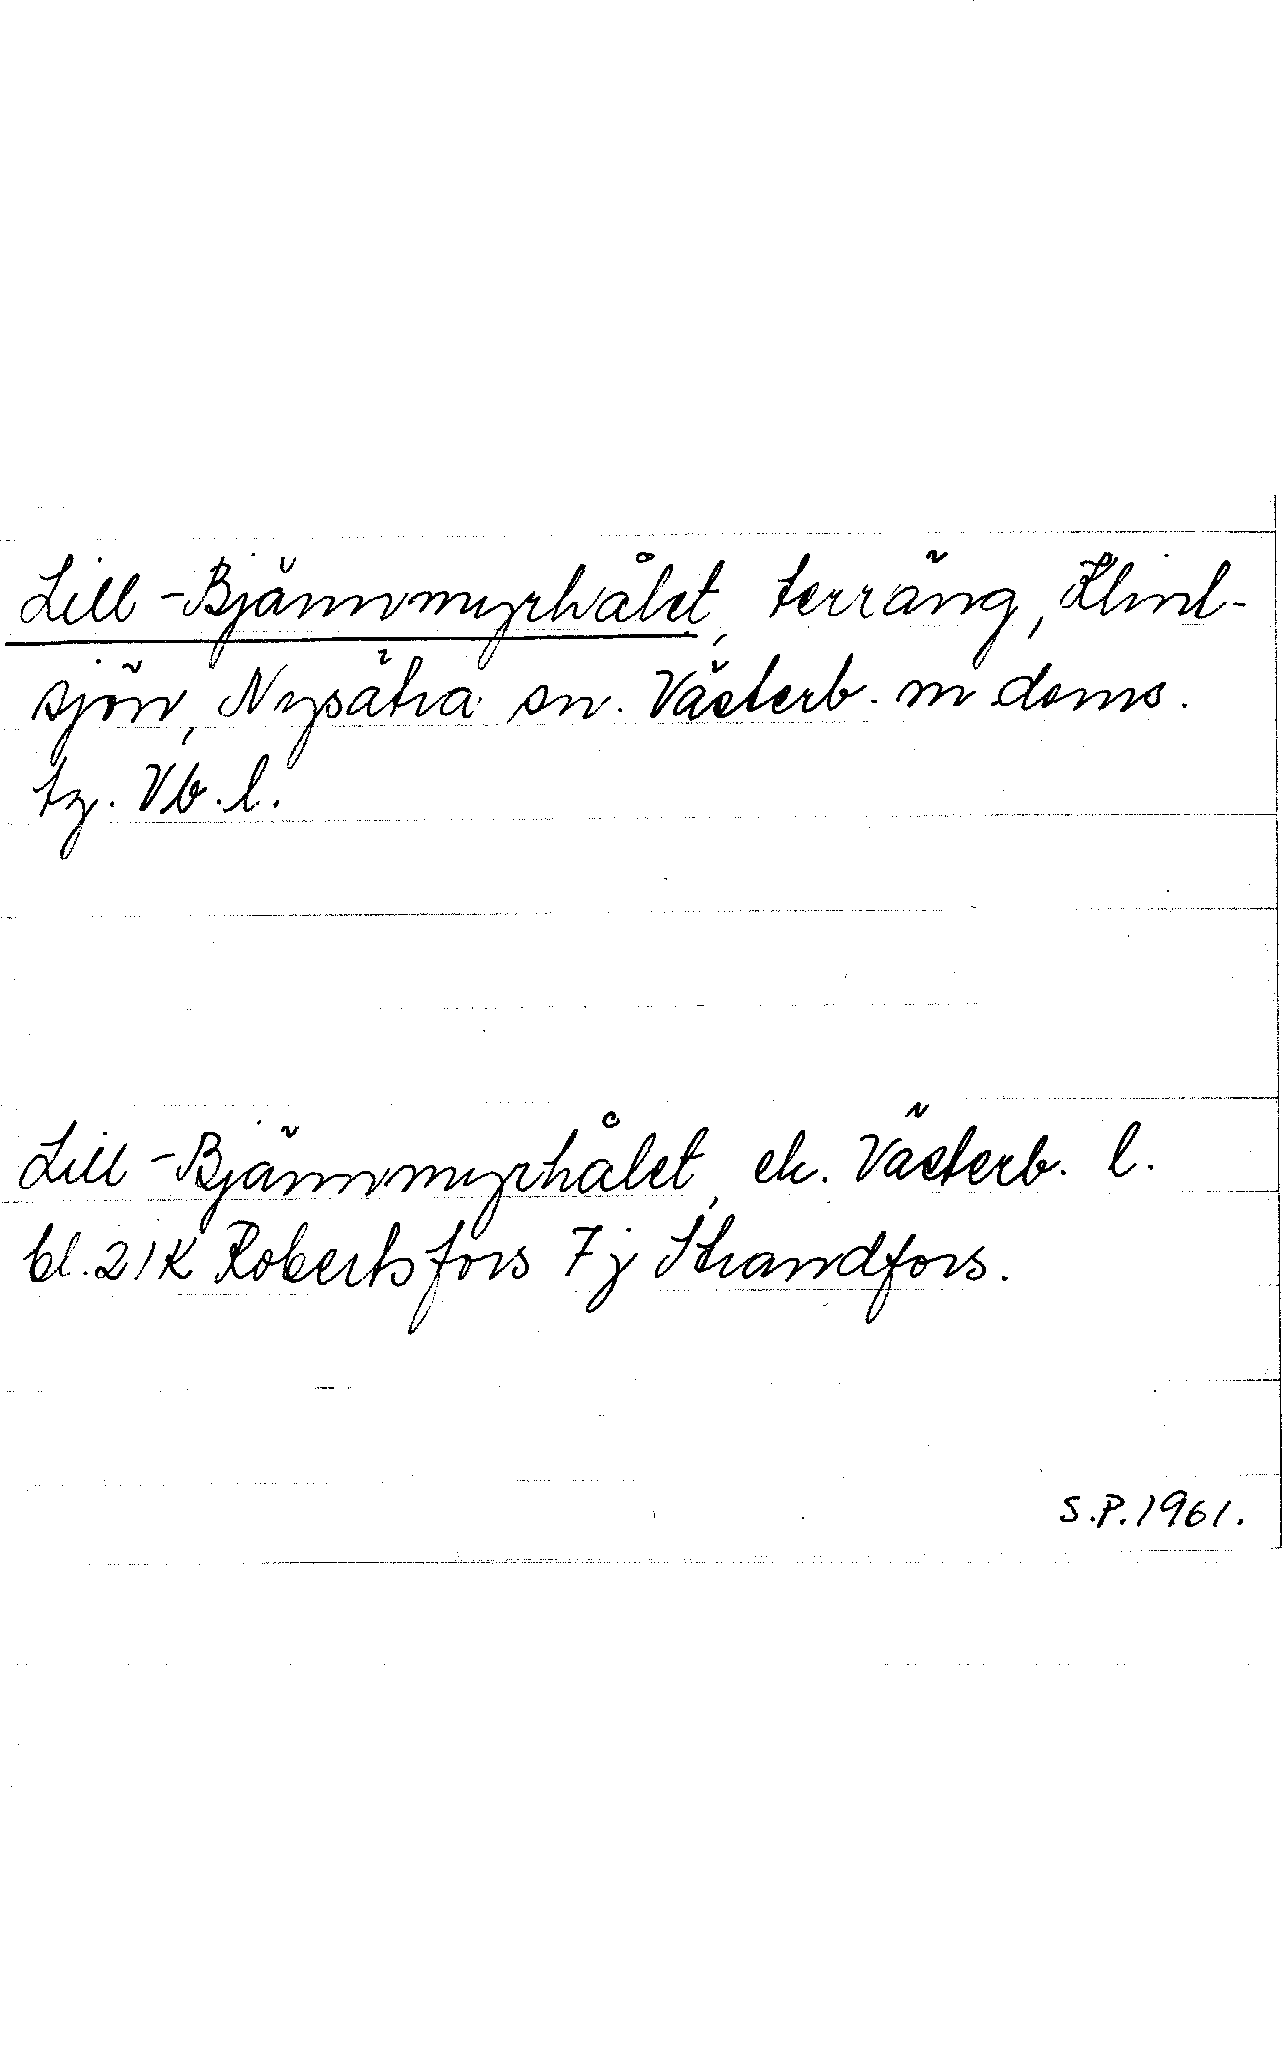 Lill-Bjännmyrhålet, terräng, Klint-
sjön, Nysätra sn. Västerb. m doms.
tg. Vb. l.
Lill-Bjännmyrhålet, ek. Västerb. l.
bl. 21K Robertsfors 7j Strandfors.
S.P. 1961.